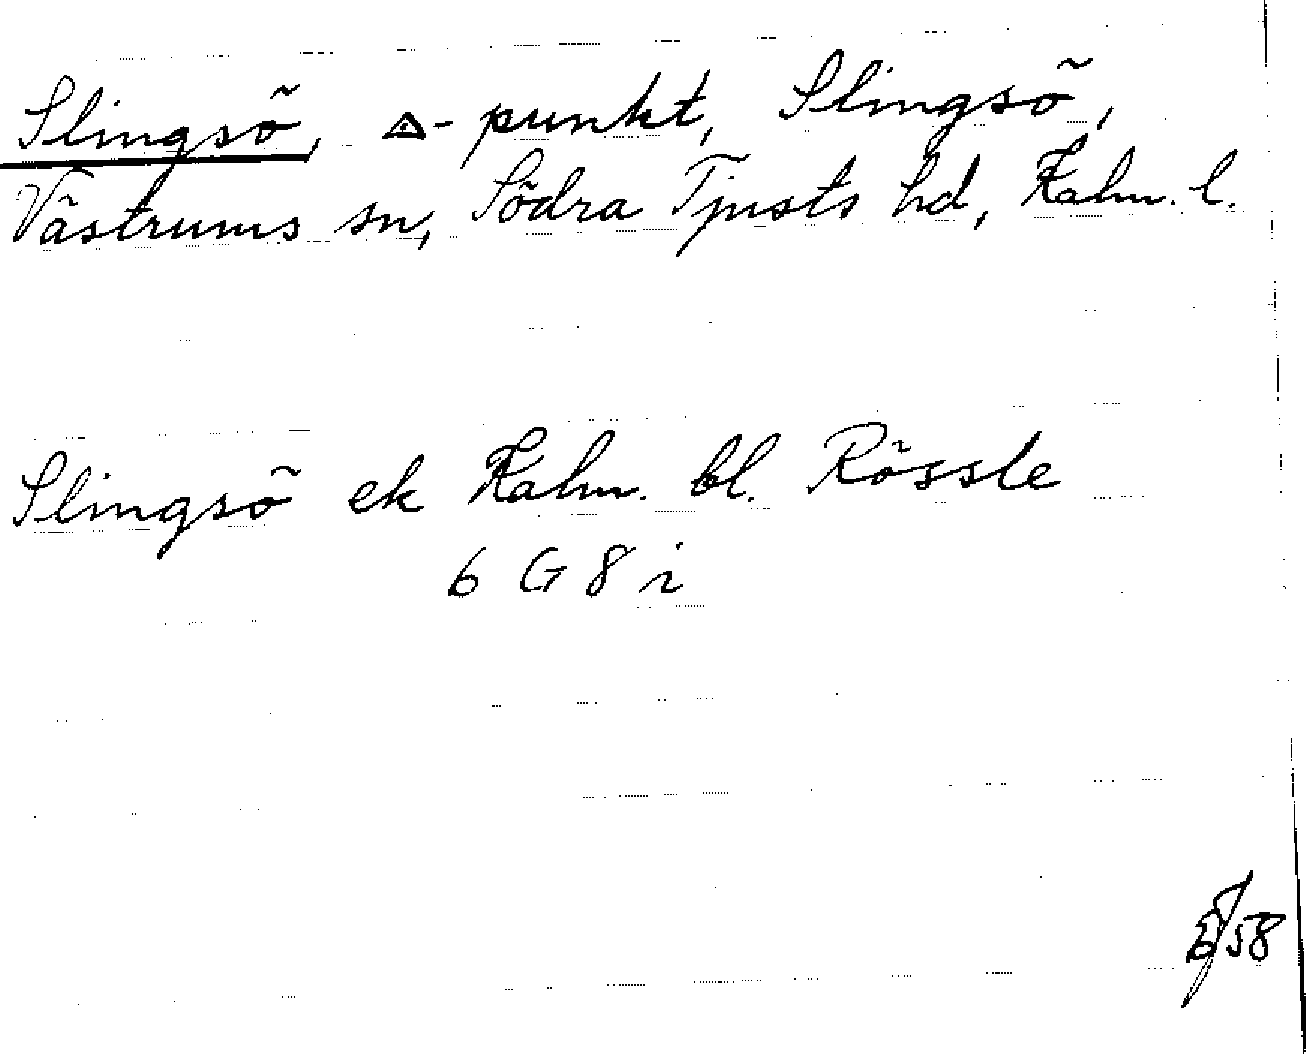 Slingsö, △-punkt, Slingsö,
Västrums sn, Södra Tjusts hd, Kalm. l.
Slingsö ek Kalm. bl. Rössle
6 G 8 i
58